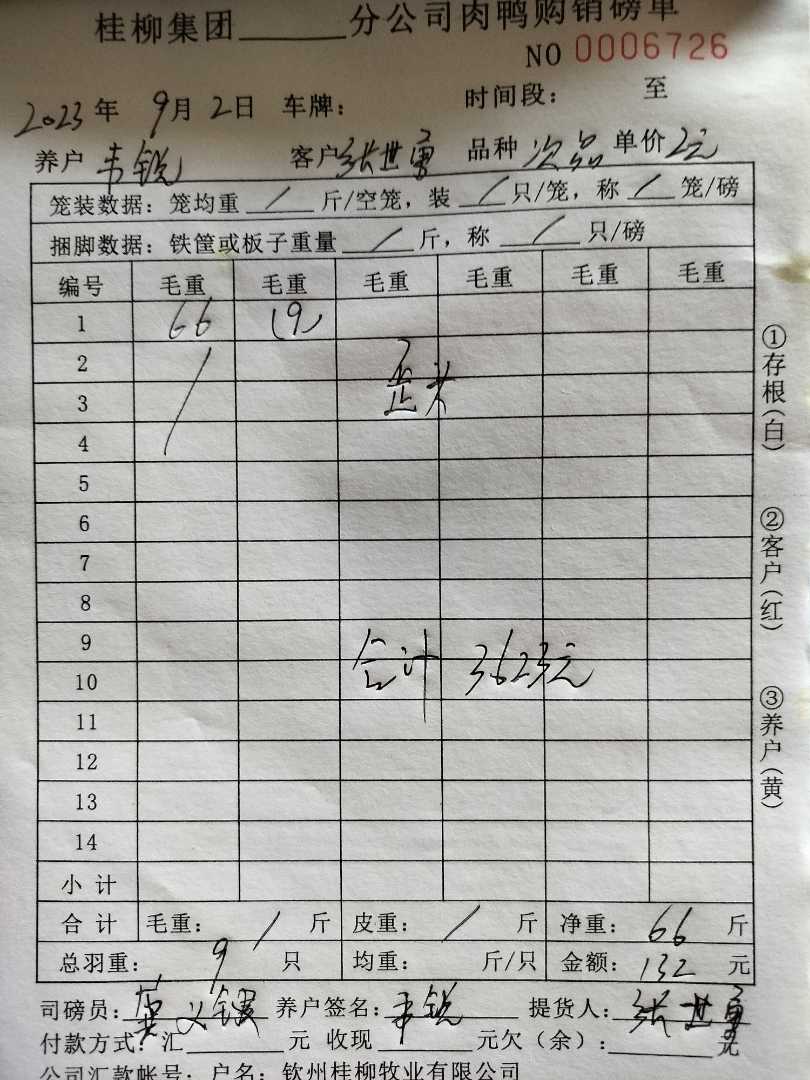 桂柳集团______分公司肉鸭购销磅单
NO 0006726
2023年 9月2日 车牌: 时间段: 至
养户 韦锐 客户 张世勇 品种 次品 单价 2元
笼装数据: 笼均重 / 斤/空笼, 装 / 只/笼, 称 / 笼/磅
捆脚数据: 铁筐或板子重量 / 斤, 称 / 只/磅
编号 毛重 毛重 毛重 毛重 毛重 毛重
1 66 (9)
2 /
3 歪头
4
5
6
7
8
9
10 合计 3623元
11
12
13
14
小计
合计 毛重: / 斤 皮重: / 斤 净重: 66 斤
总羽重: 9 只 均重: 斤/只 金额: 132 元
司磅员: 养户签名: 韦锐 提货人: 张世勇
付款方式: 汇______元 收现______元欠(余):______元
公司汇款帐号: 户名: 钦州桂柳牧业有限公司
①存根(白)
②客户(红)
③养户(黄)